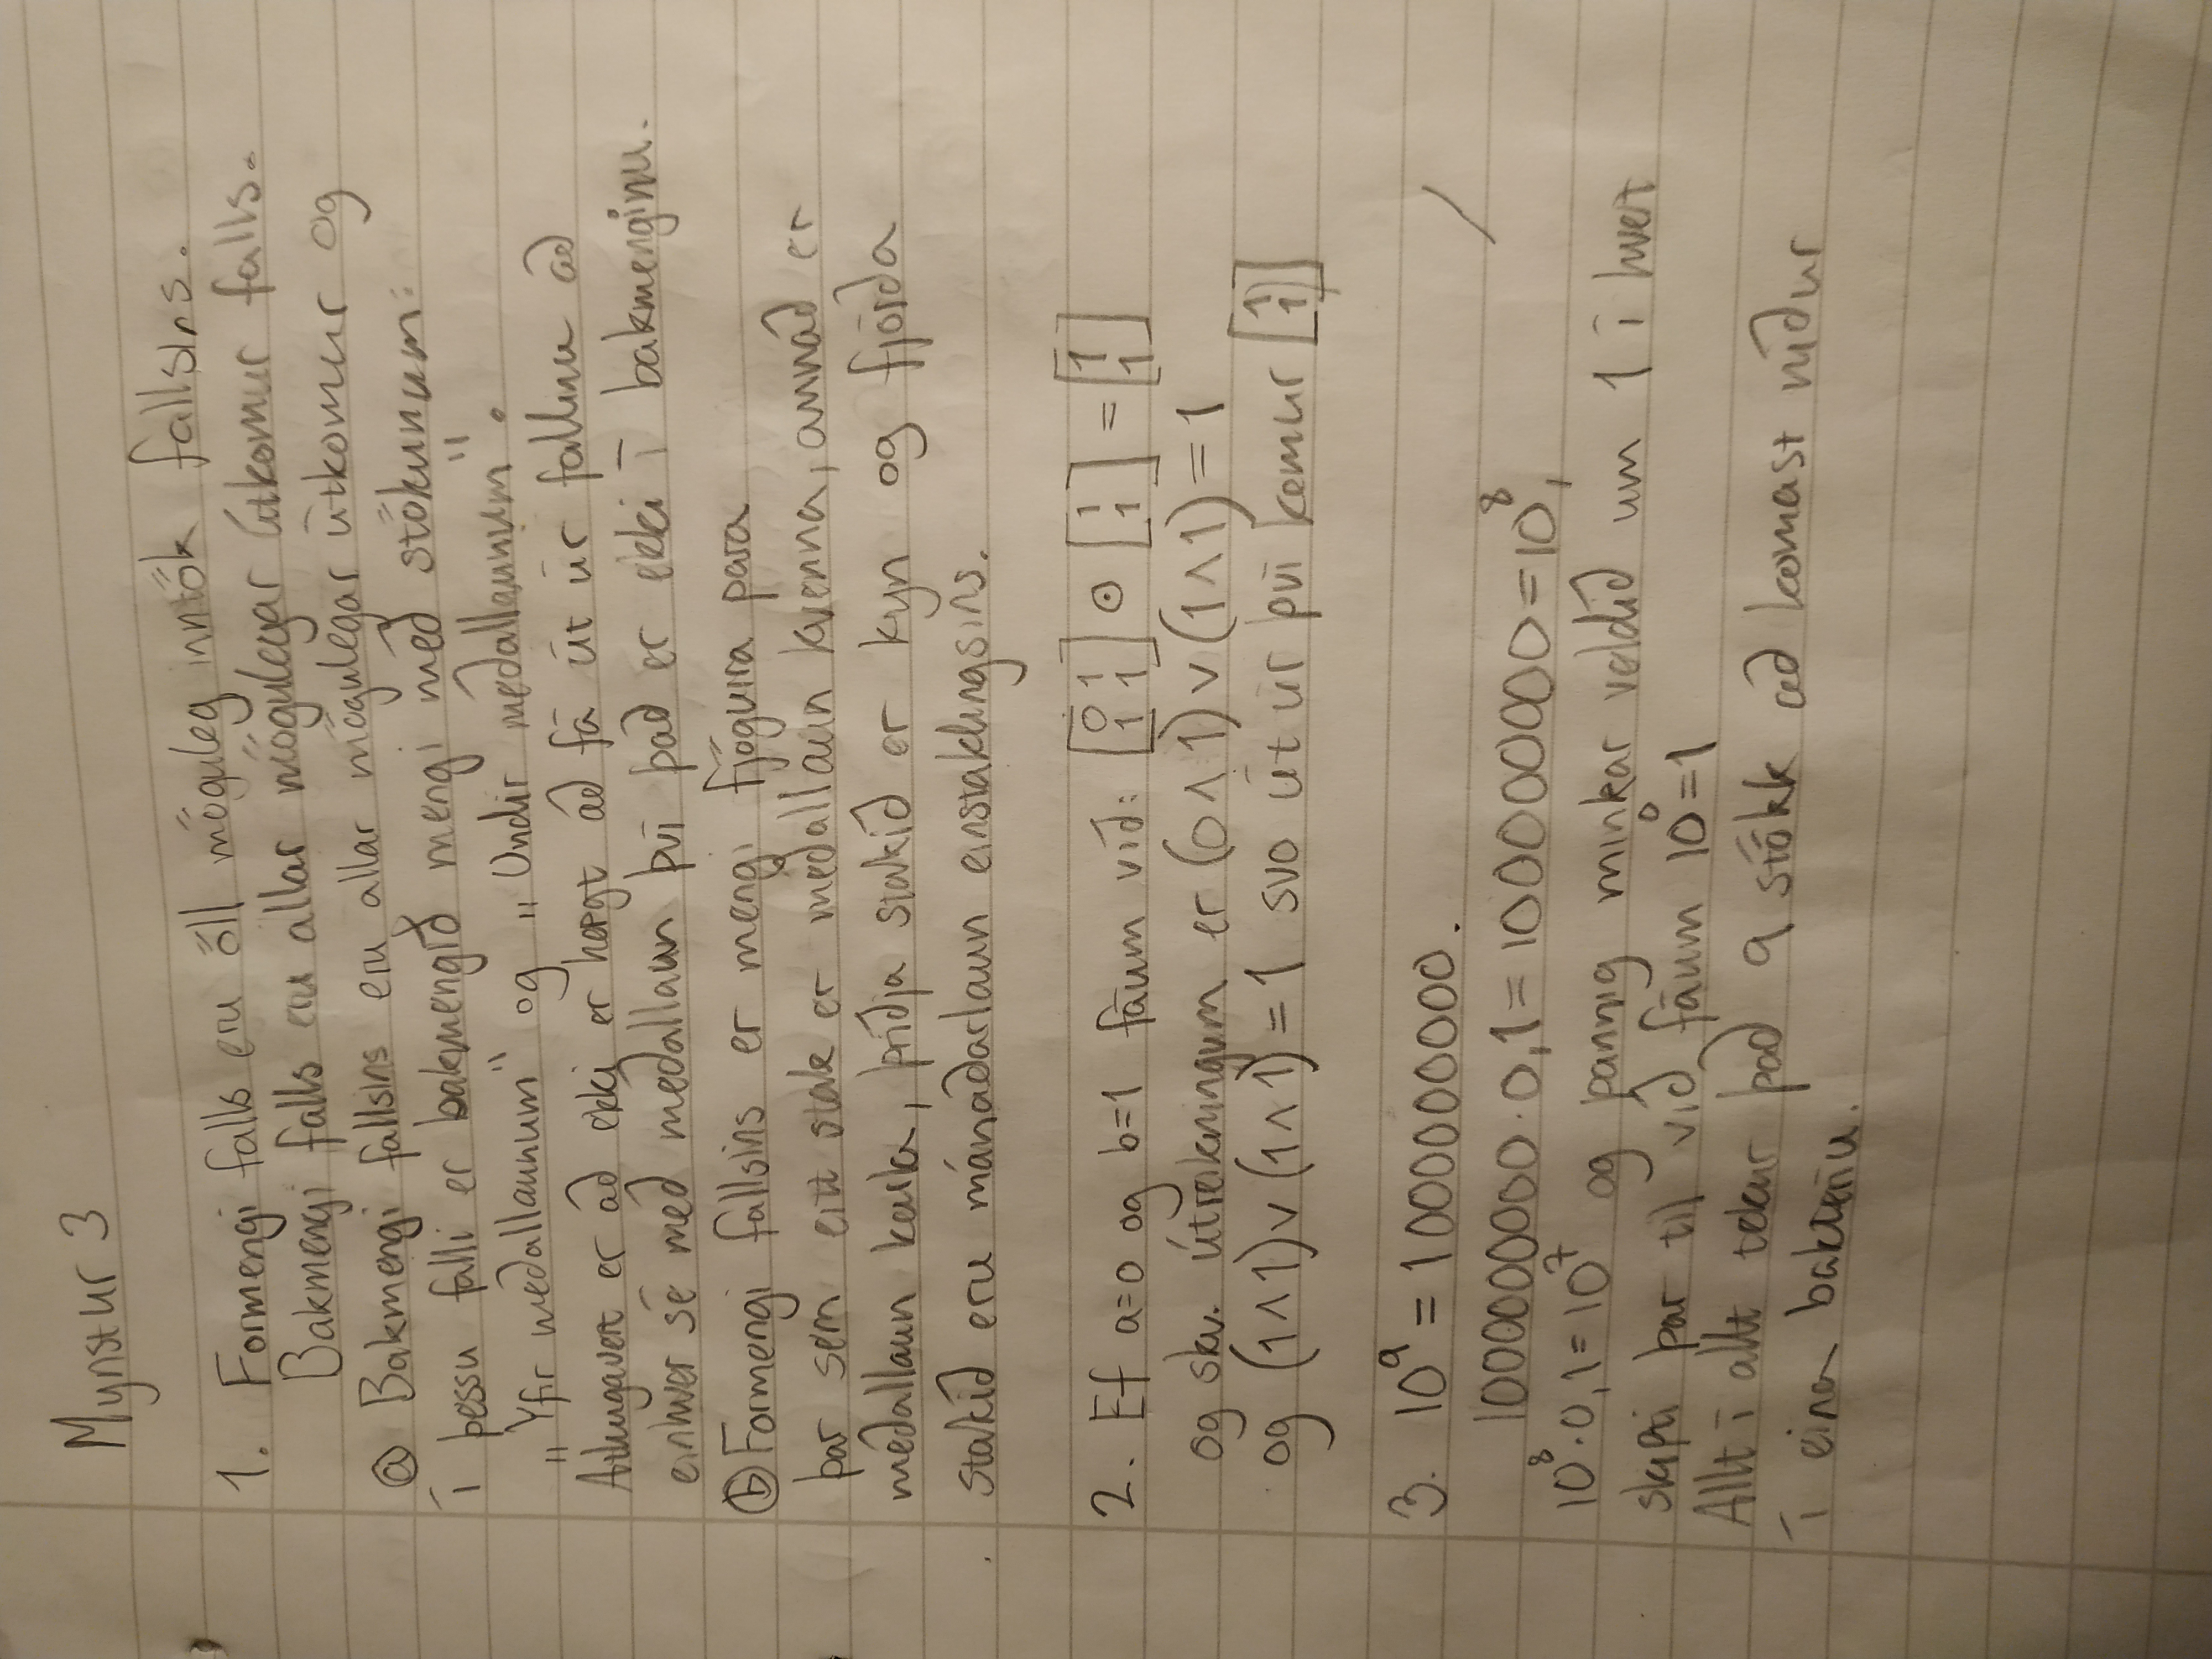 Mynstur 3
1. Formengi falls eru öll möguleg inntök fallsins.
Bakmengi falls eru allar mögulegar útkomur falls.
ⓐ Bakmengi fallsins eru allar mögulegar útkomur og
í þessu falli er bakmengið mengi með stökunum:
„Yfir meðallaunum" og „Undir meðallaunum".
Athugavert er að ekki er hægt að fá út úr fallinu að
einhver sé með meðallaun því það er ekki í bakmenginu.
ⓑ Formengi fallsins er mengi fjögurra para
þar sem eitt stak er meðallaun kvenna, annað er
meðallaun karla, þriðja stakið er kyn og fjórða
stakið eru mánaðarlaun einstaklingsins.
2. Ef a=0 og b=1 fáum við: [0 1; 1 1] ⊙ [1; 1] = [1; 1]
og skv. útreikningum er (0∧1)∨(1∧1)=1
og (1∧1)∨(1∧1)=1 svo út úr því kemur [1; 1]
3. 10⁹ = 1000000000.
1000000000·0,1=100000000=10⁸,
10⁸·0,1=10⁷ og þannig minkar veldið um 1 í hvert
skipti þar til við fáum 10⁰=1
Allt í allt tekur það 9 stökk að komast niður
í eina bakteríu.